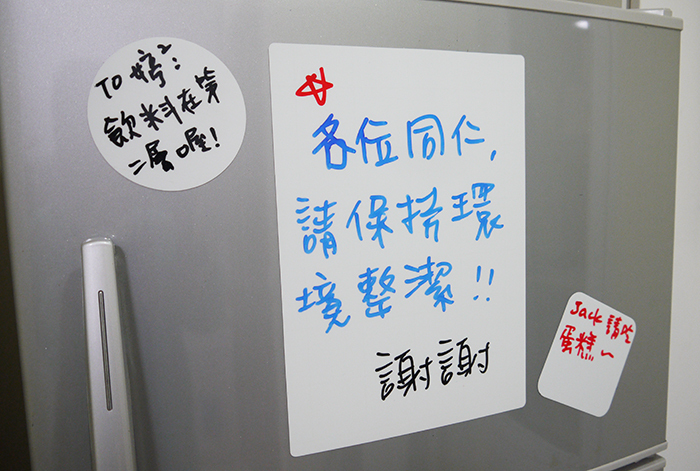 TO 婷²:
飲料在第
二層喔!
各位同仁,
請保持環
境整潔!!
謝謝
Jack 請吃
蛋糕~